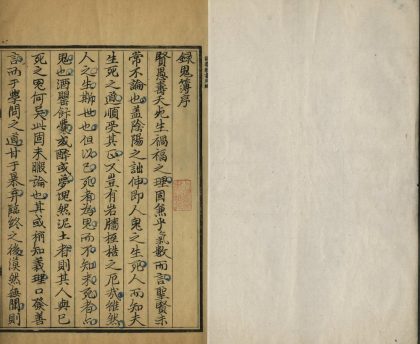 録鬼簿序
賢愚壽夭死生禍福之理固兼乎氣數而言聖賢未
常不論也盖陰陽之詘伸即人鬼之生死人而知夫
生死之道順受其正又豈有岩牆桎梏之厄哉雖然
人之生斯世也但以已死者為鬼而不知未死者而
鬼也酒罌飯囊或醉或夢塊然泥土者則其人與已
死之鬼何異此固未暇論也其或稍知義理口發善
言而于學問之道甘于暴弃臨終之後漠然無聞則